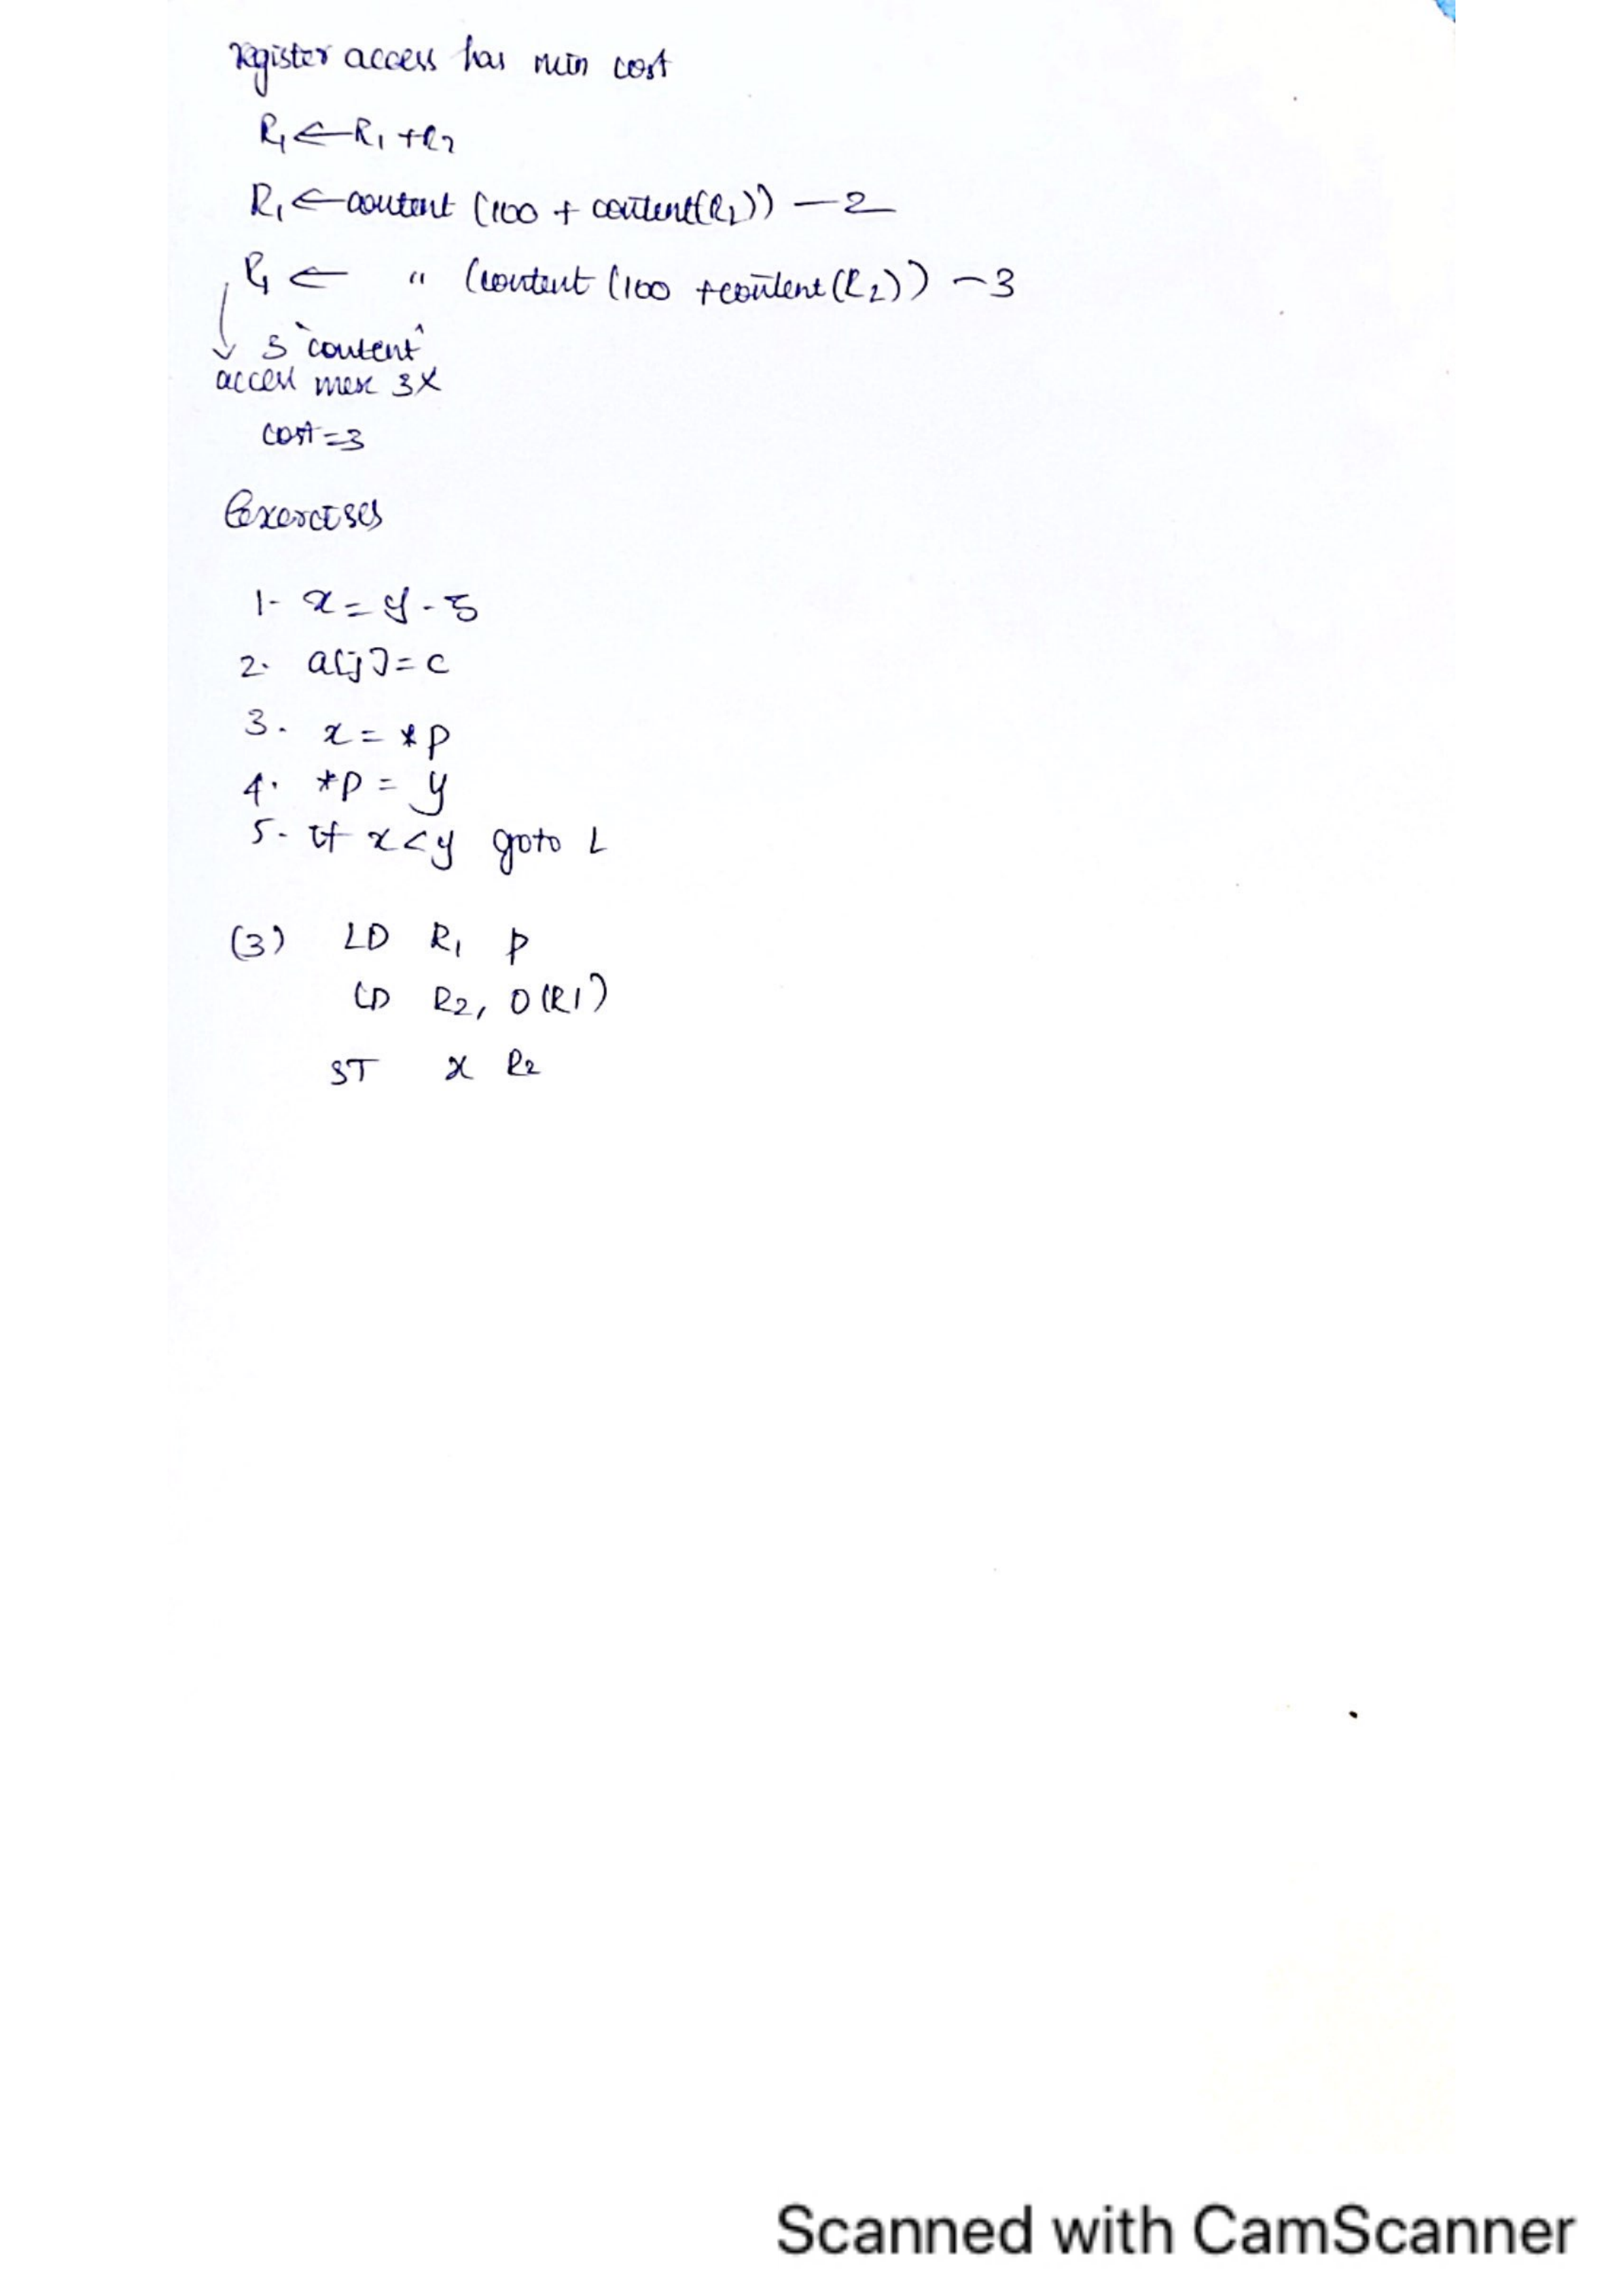 register access has min cost
R1 ← R1 + R2
R1 ← content (100 + content(R2)) — 2
R1 ← " (content (100 + content (R2)) — 3
3 "content"
access mem 3X
cost = 3
Exercises
1- x = y - 5
2. a[j] = c
3. x = *p
4. *p = y
5- if x < y goto L
(3) LD R1 p
LD R2, 0(R1)
ST x R2
Scanned with CamScanner